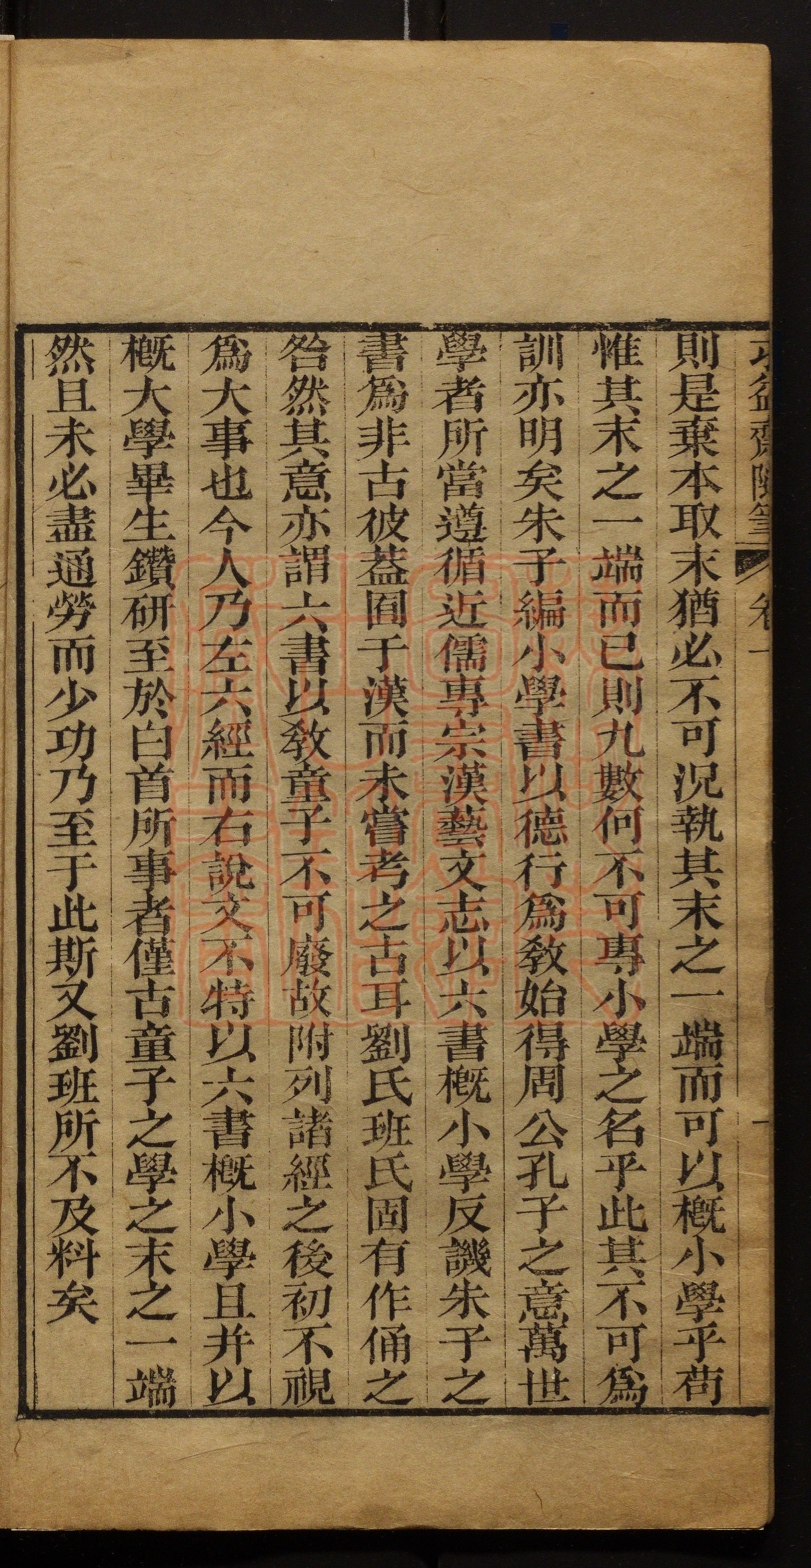 求益齋隨筆 卷一 一
則是棄本取末猶必不可況執其末之一端而可以概小學乎苟
惟其末之一端而已則九數何不可專小學之名乎此其不可爲
訓亦明矣朱子編小學書以德行爲敎始得周公孔子之意萬世
學者所當遵循近儒專宗漢藝文志以六書概小學反譏朱子之
書爲非古彼蓋囿于漢而未嘗考之古耳劉氏班氏固有作俑之
咎然其意亦謂六書以敎童子不可廢故附列諸經之後初不視
爲大事也今人乃左六經而右說文不特以六書概小學且并以
概大學畢生鑽研至於白首所事者僅古童子之學之末之一端
然且未必盡通勞而少功乃至于此斯又劉班所不及料矣